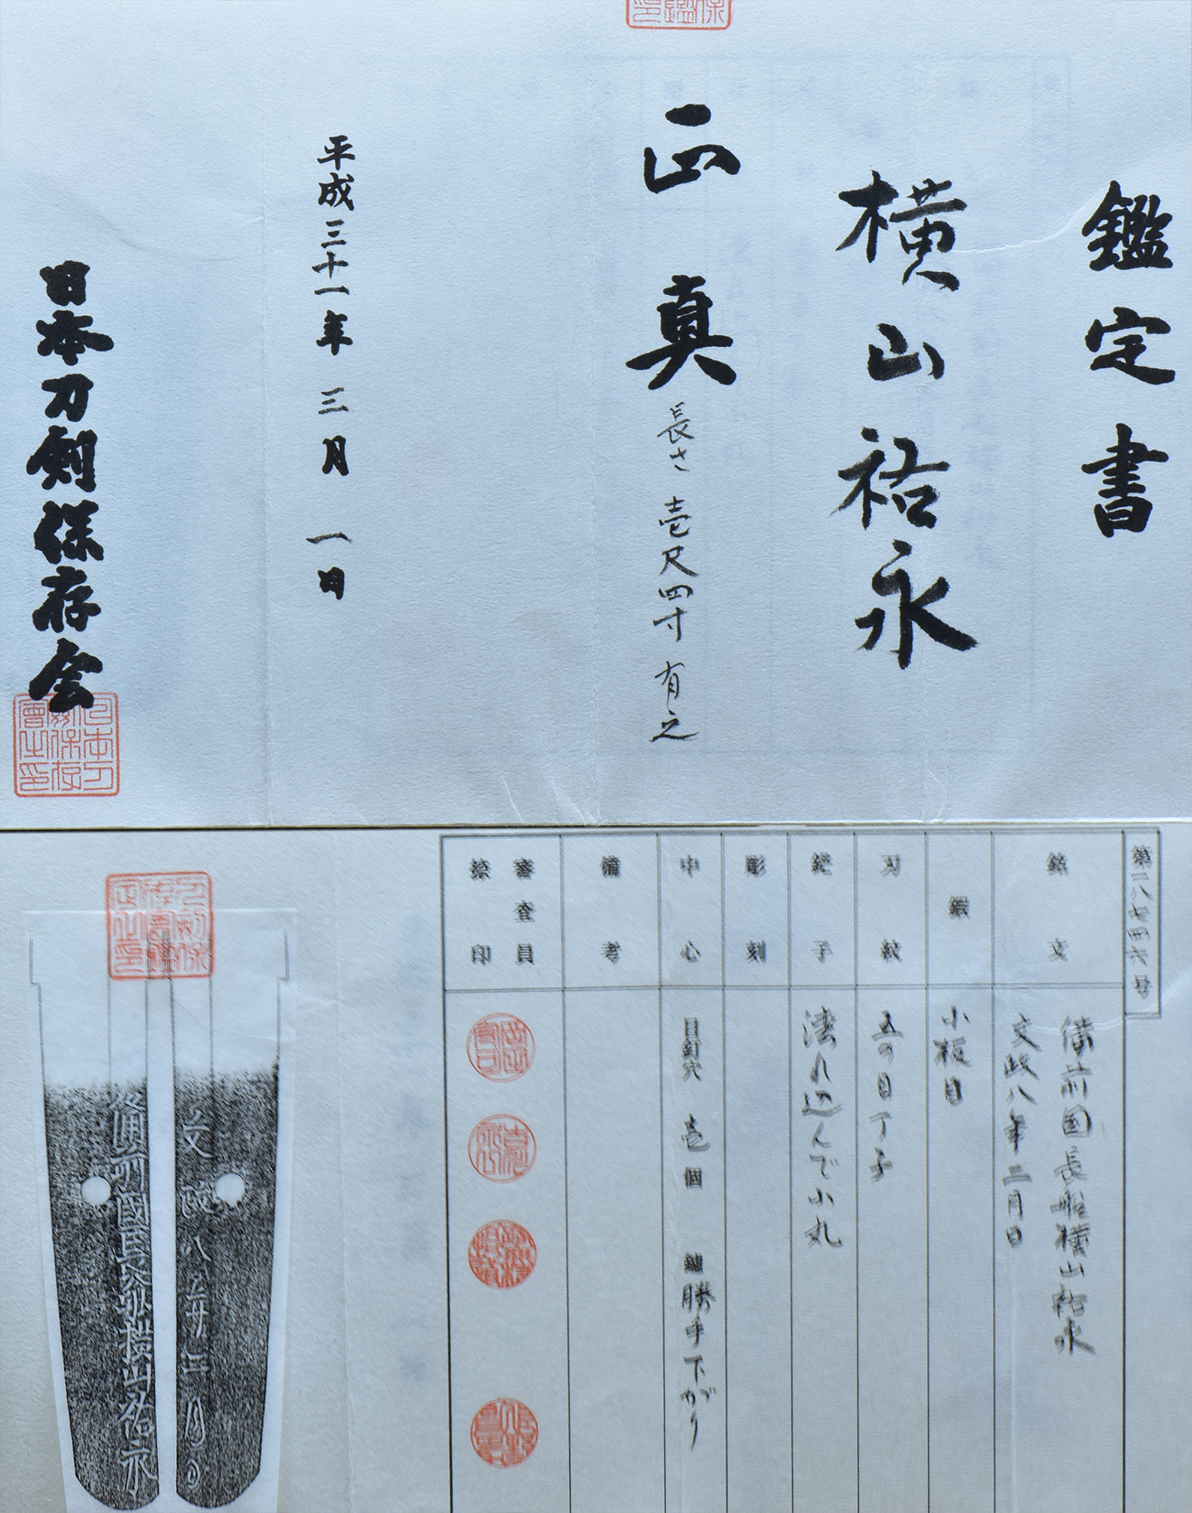 鑑定書
横山祐永
正真
長さ 壱尺四寸 有之
平成三十一年 三月 一日
日本刀剣保存会
第一八七四六号
銘文
備前国長船横山祐永
文政八年二月日
鍛
小板目
刃紋
五の目丁子
鋩子
湾れ込んで小丸
彫刻
中心
目釘穴 壱個 鑢 勝手下がり
備考
審査員
捺印
備前国長船横山祐永
文政八年二月日